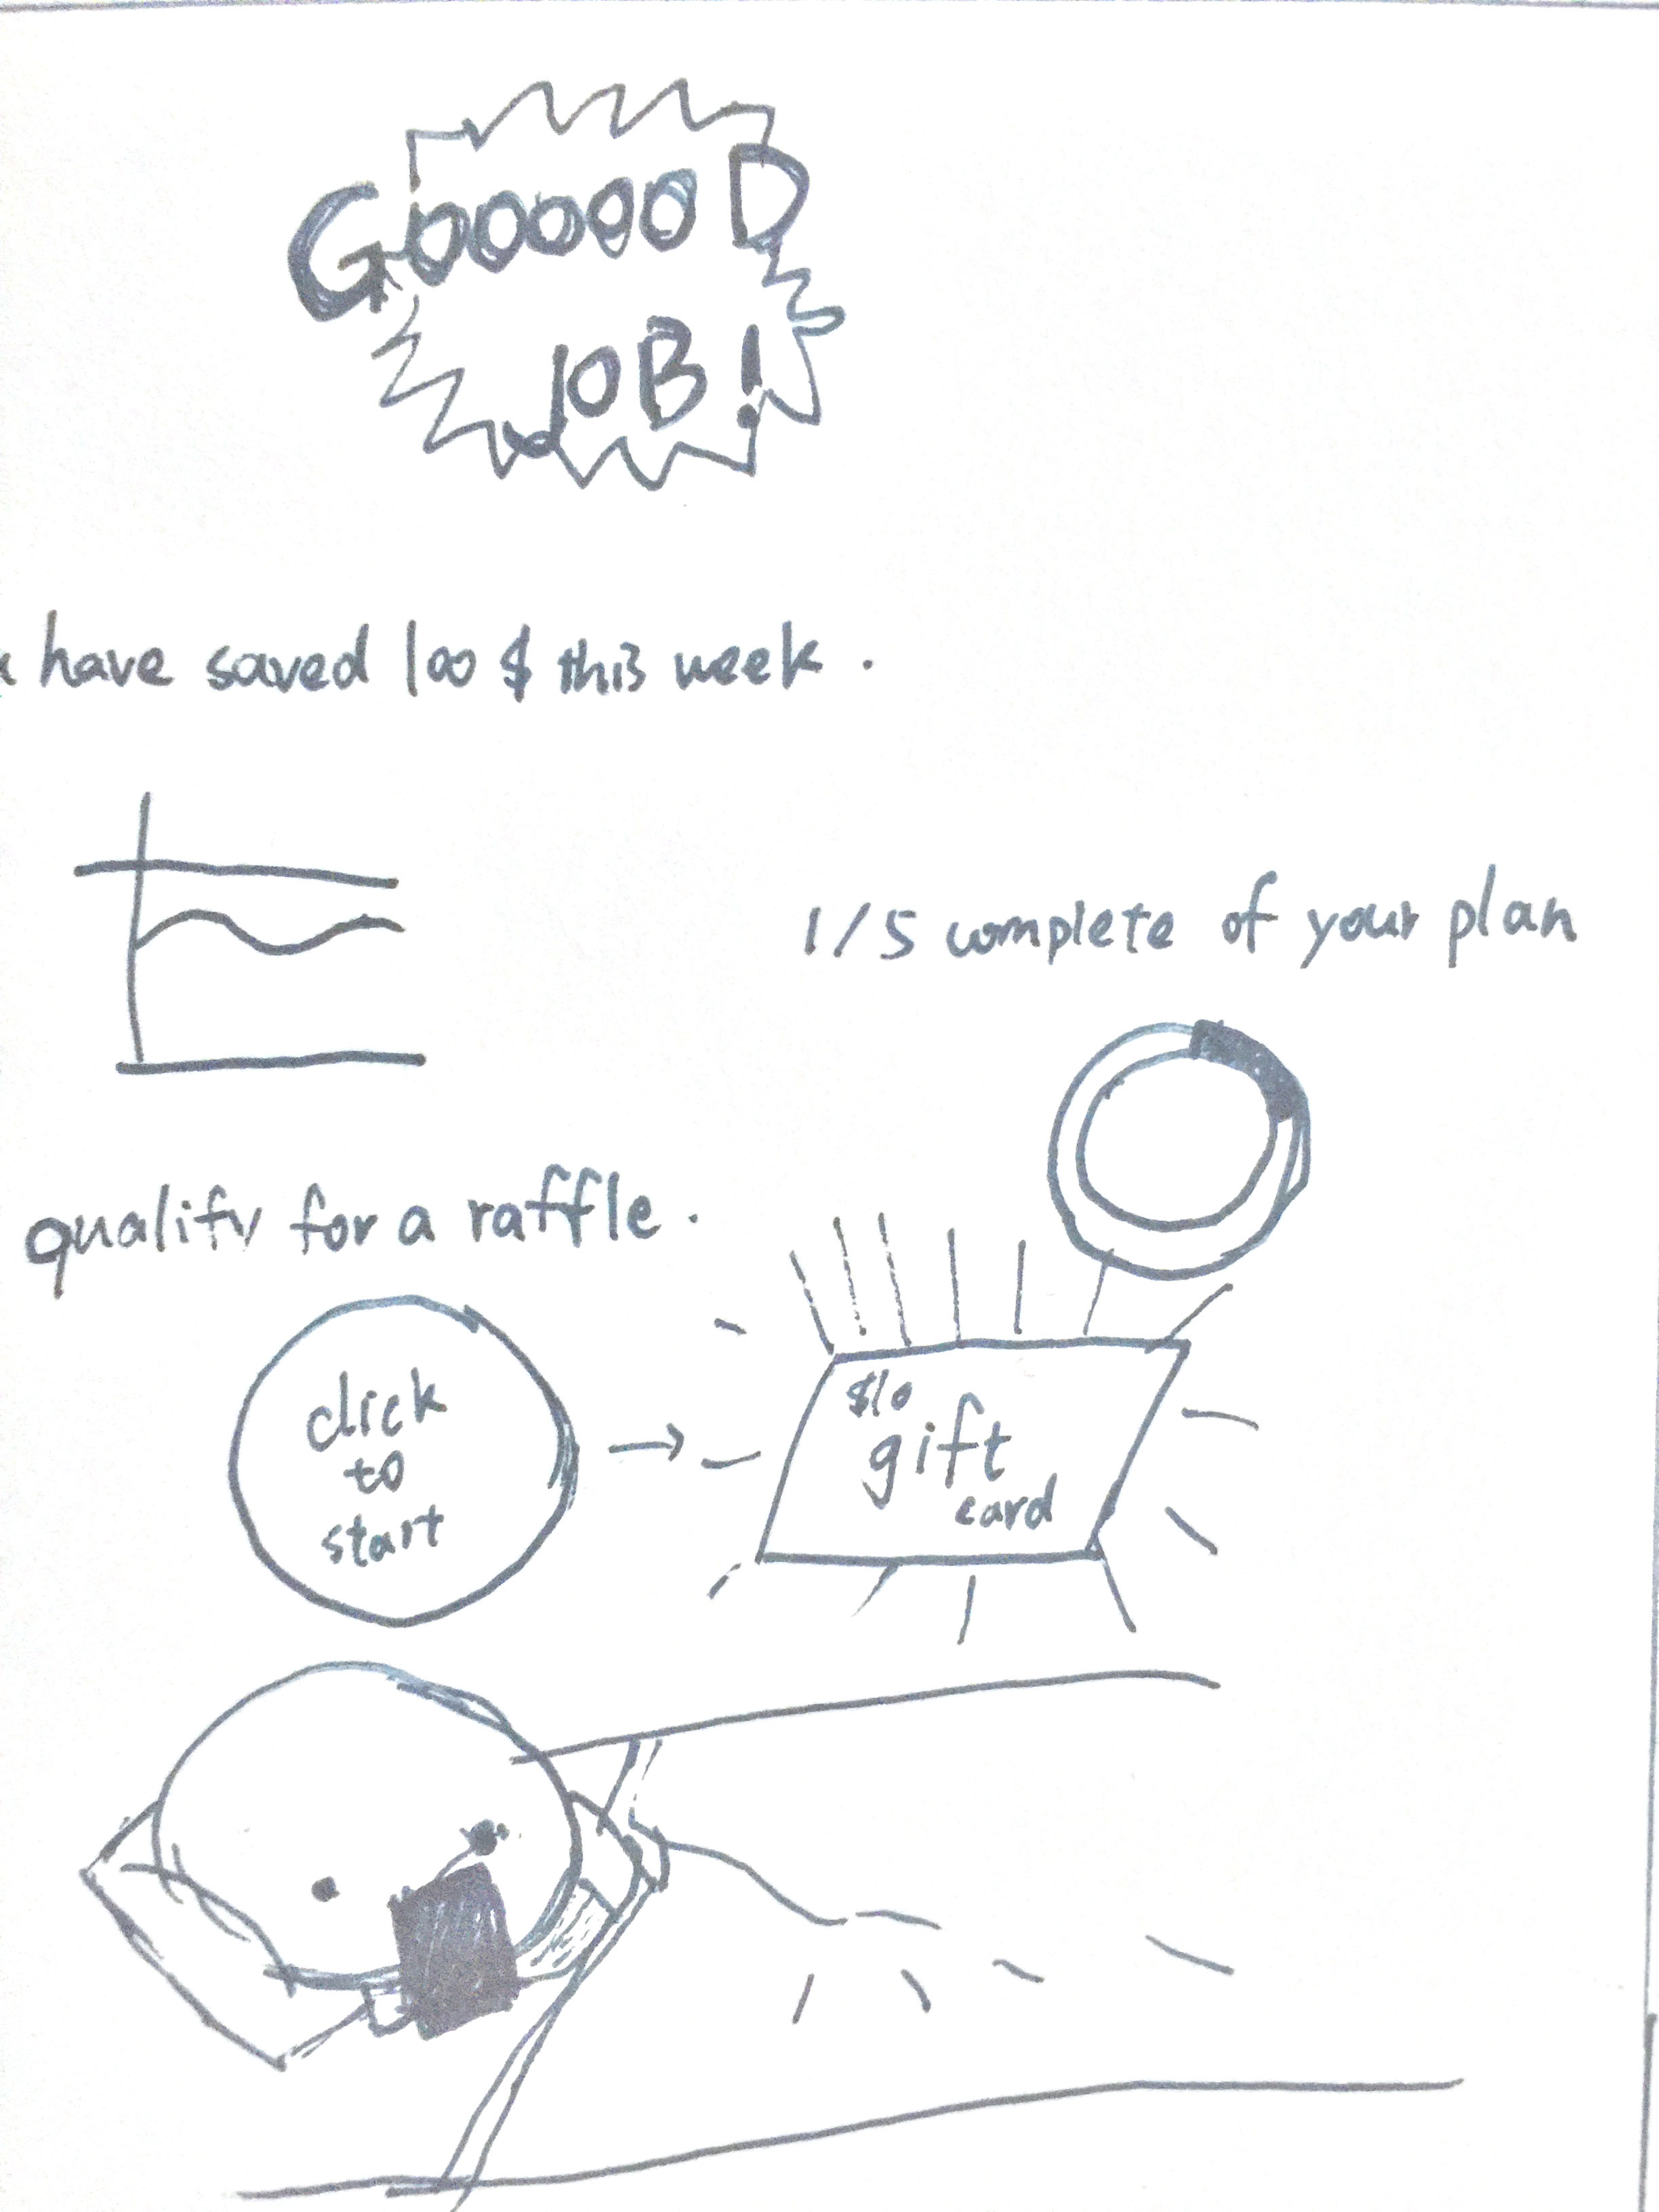 GOOOOOD
JOB!
have saved 100$ this week.
1/5 complete of your plan
qualify for a raffle.
click
to
start
$10
gift
card